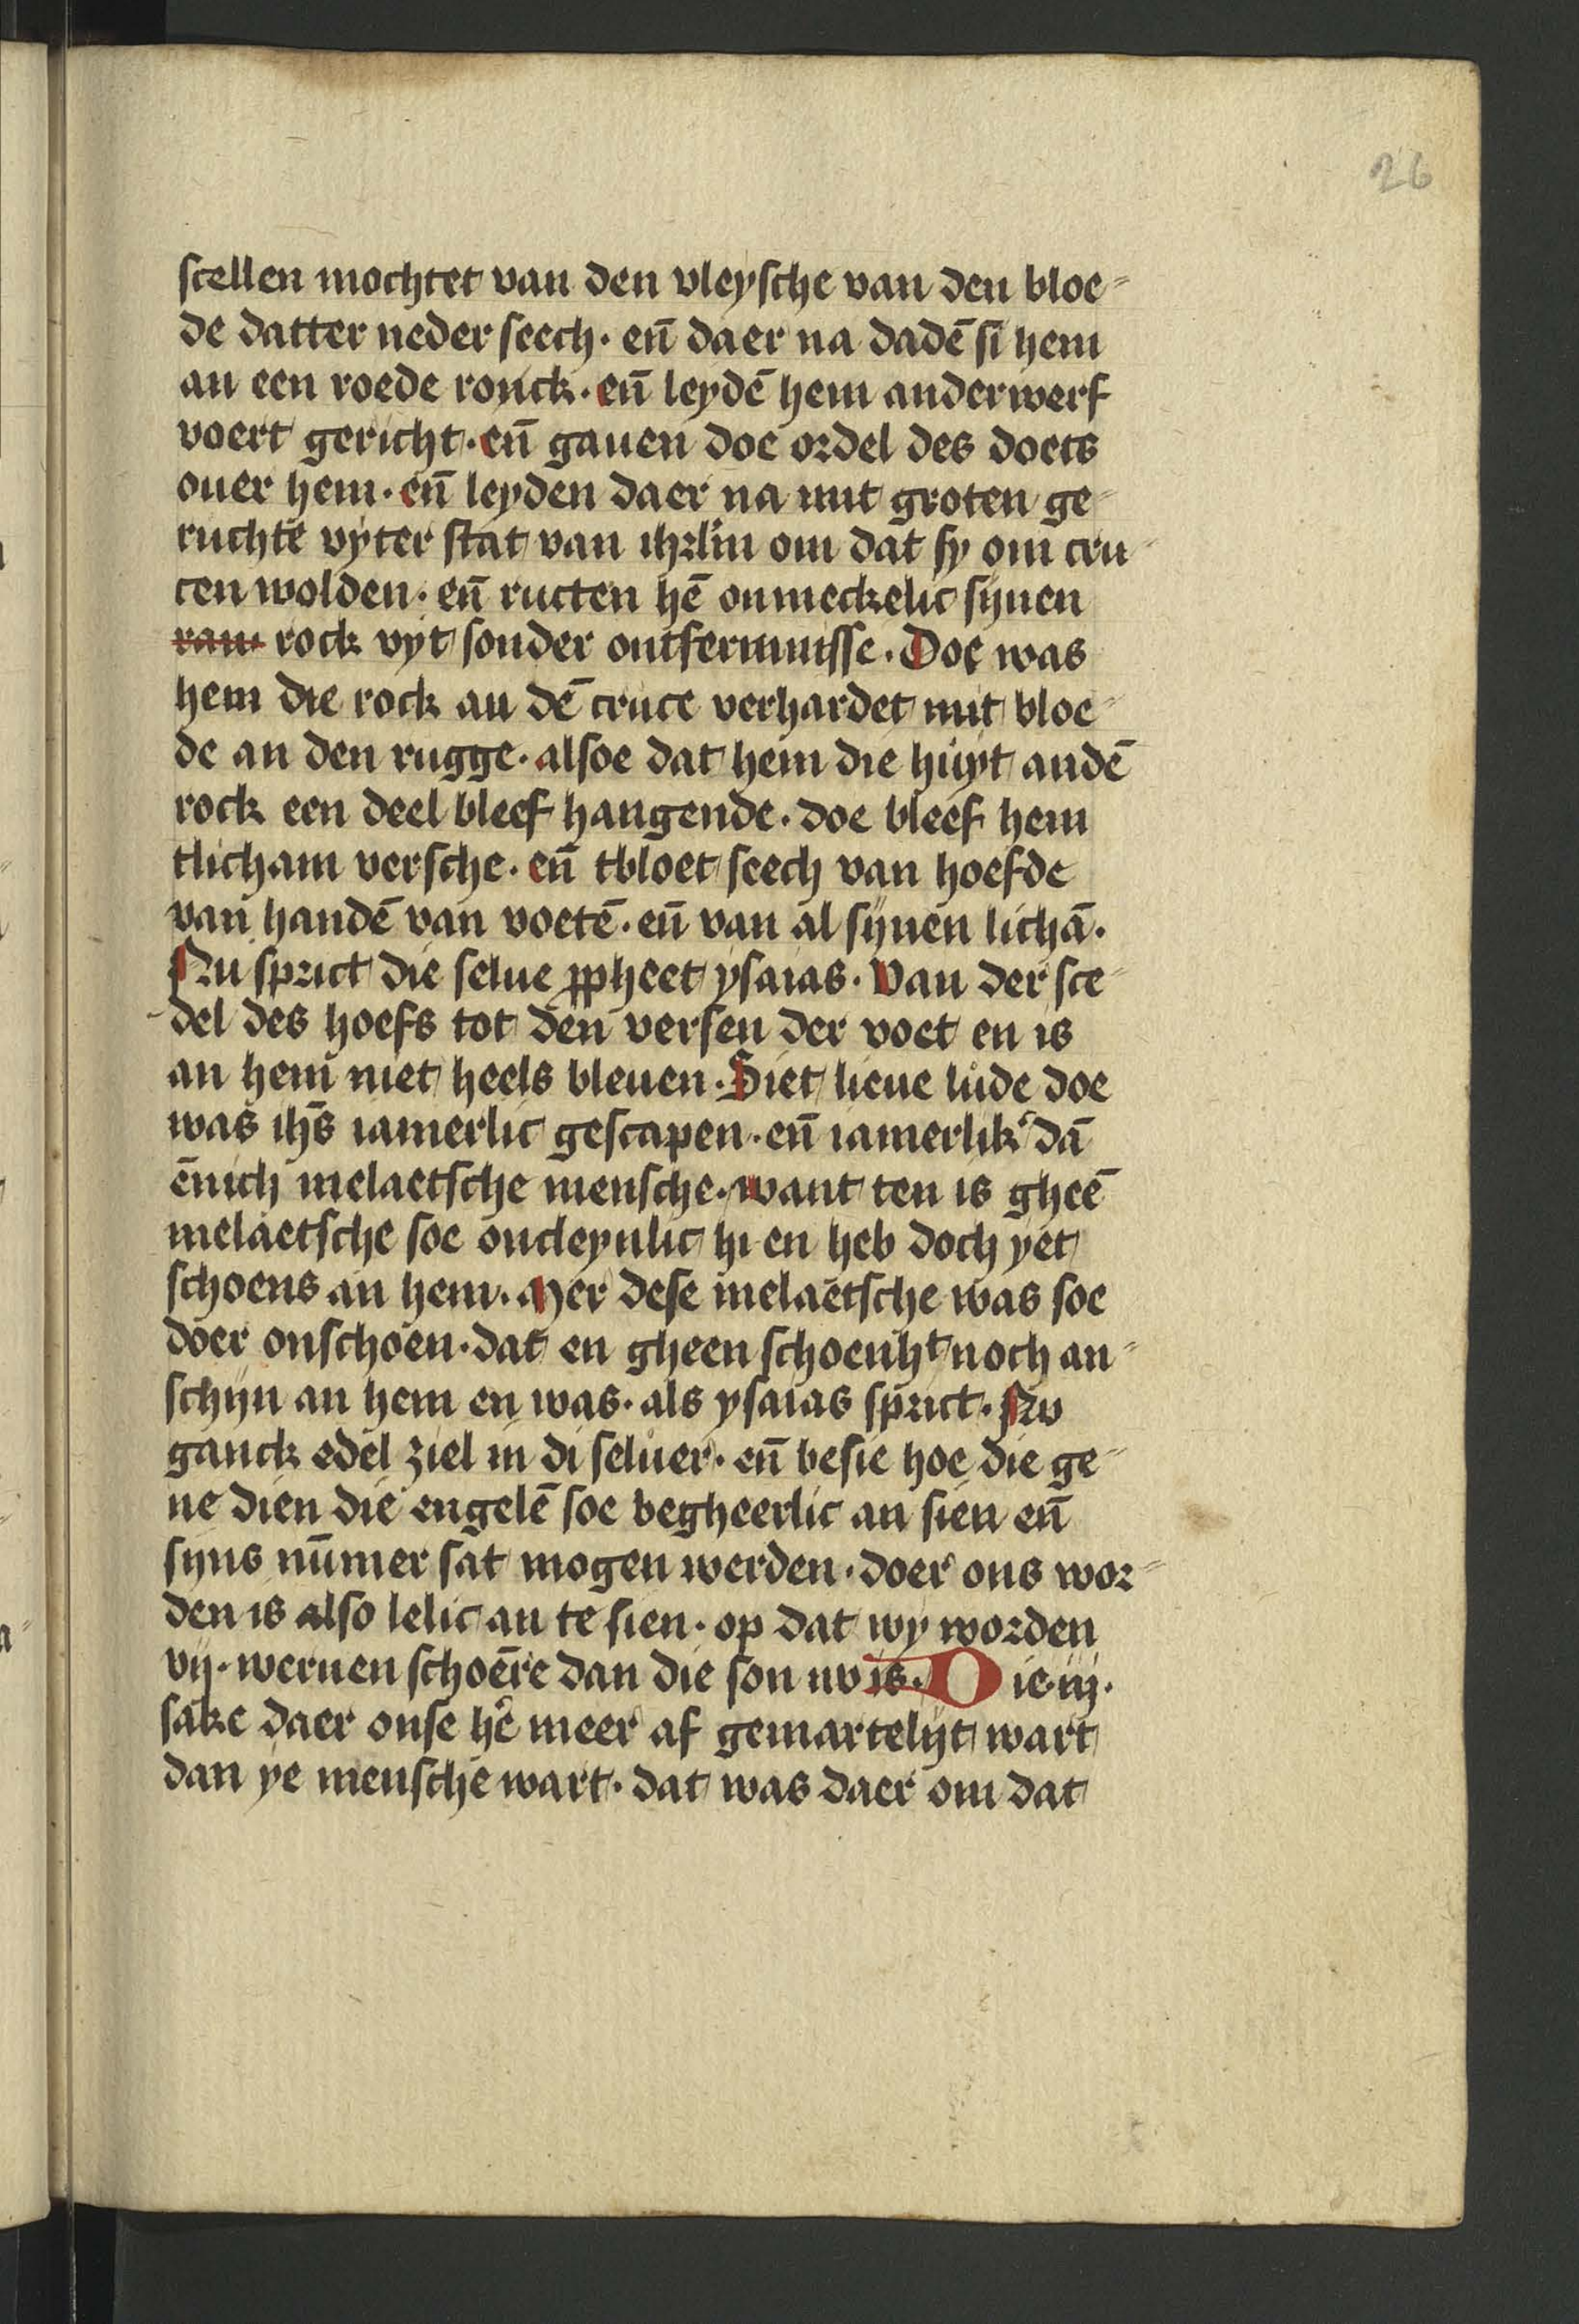 26
scellen mochtet van den vleysche van den bloe⸗
de datter neder seech· en̄ daer na dadē si hem
an een roede ronck· en̄ leydē hem anderwerf
voert gericht· en̄ gauen doe ordel des doets
ouer hem· en̄ leyden daer na mit groten ge⸗
ruchte vyter stat van ihrl̄m om dat sy om cru⸗
cen wolden· en̄ ructen hē onmeckelic synen
ran rock vyt sonder ontfermnisse· Doe was
hem die rock an dē cruce verhardet mit bloe⸗
de an den rugge· alsoe dat hem die huyt andē
rock een deel bleef hangende· doe bleef hem
tlicham versche· en̄ tbloet seech van hoefde
van handē van voetē· en̄ van al synen lichā·
Nu sprict die selue ꝓpheet ysaias· Van der sce⸗
del des hoefs tot den versen der voet en is
an hem niet heels bleuen· Siet lieue lude doe
was ihs̄ iamerlic gescapen· en̄ iamerlik' dā
ēnich melaetsche mensche· want ten is gheē
melaetsche soe oncleynlic hi en heb doch yet
schoens an hem· Mer dese melaetsche was soe
doer onschoen· dat en gheen schoenhᵗ noch an⸗
schyn an hem en was· als ysaias sprict· Nv
ganck edel ziel in di seluer· en̄ besie hoe die ge⸗
ne dien die engelē soe begheerlic an sien en̄
syns nūmer sat mogen werden· doer ons wor⸗
den is also lelic an te sien· op dat wy worden
vij· weruen schoēre dan die son nv is· Die iij·
sake daer onse hē meer af gemartelijt wart
dan ye mensche wart· dat was daer om dat